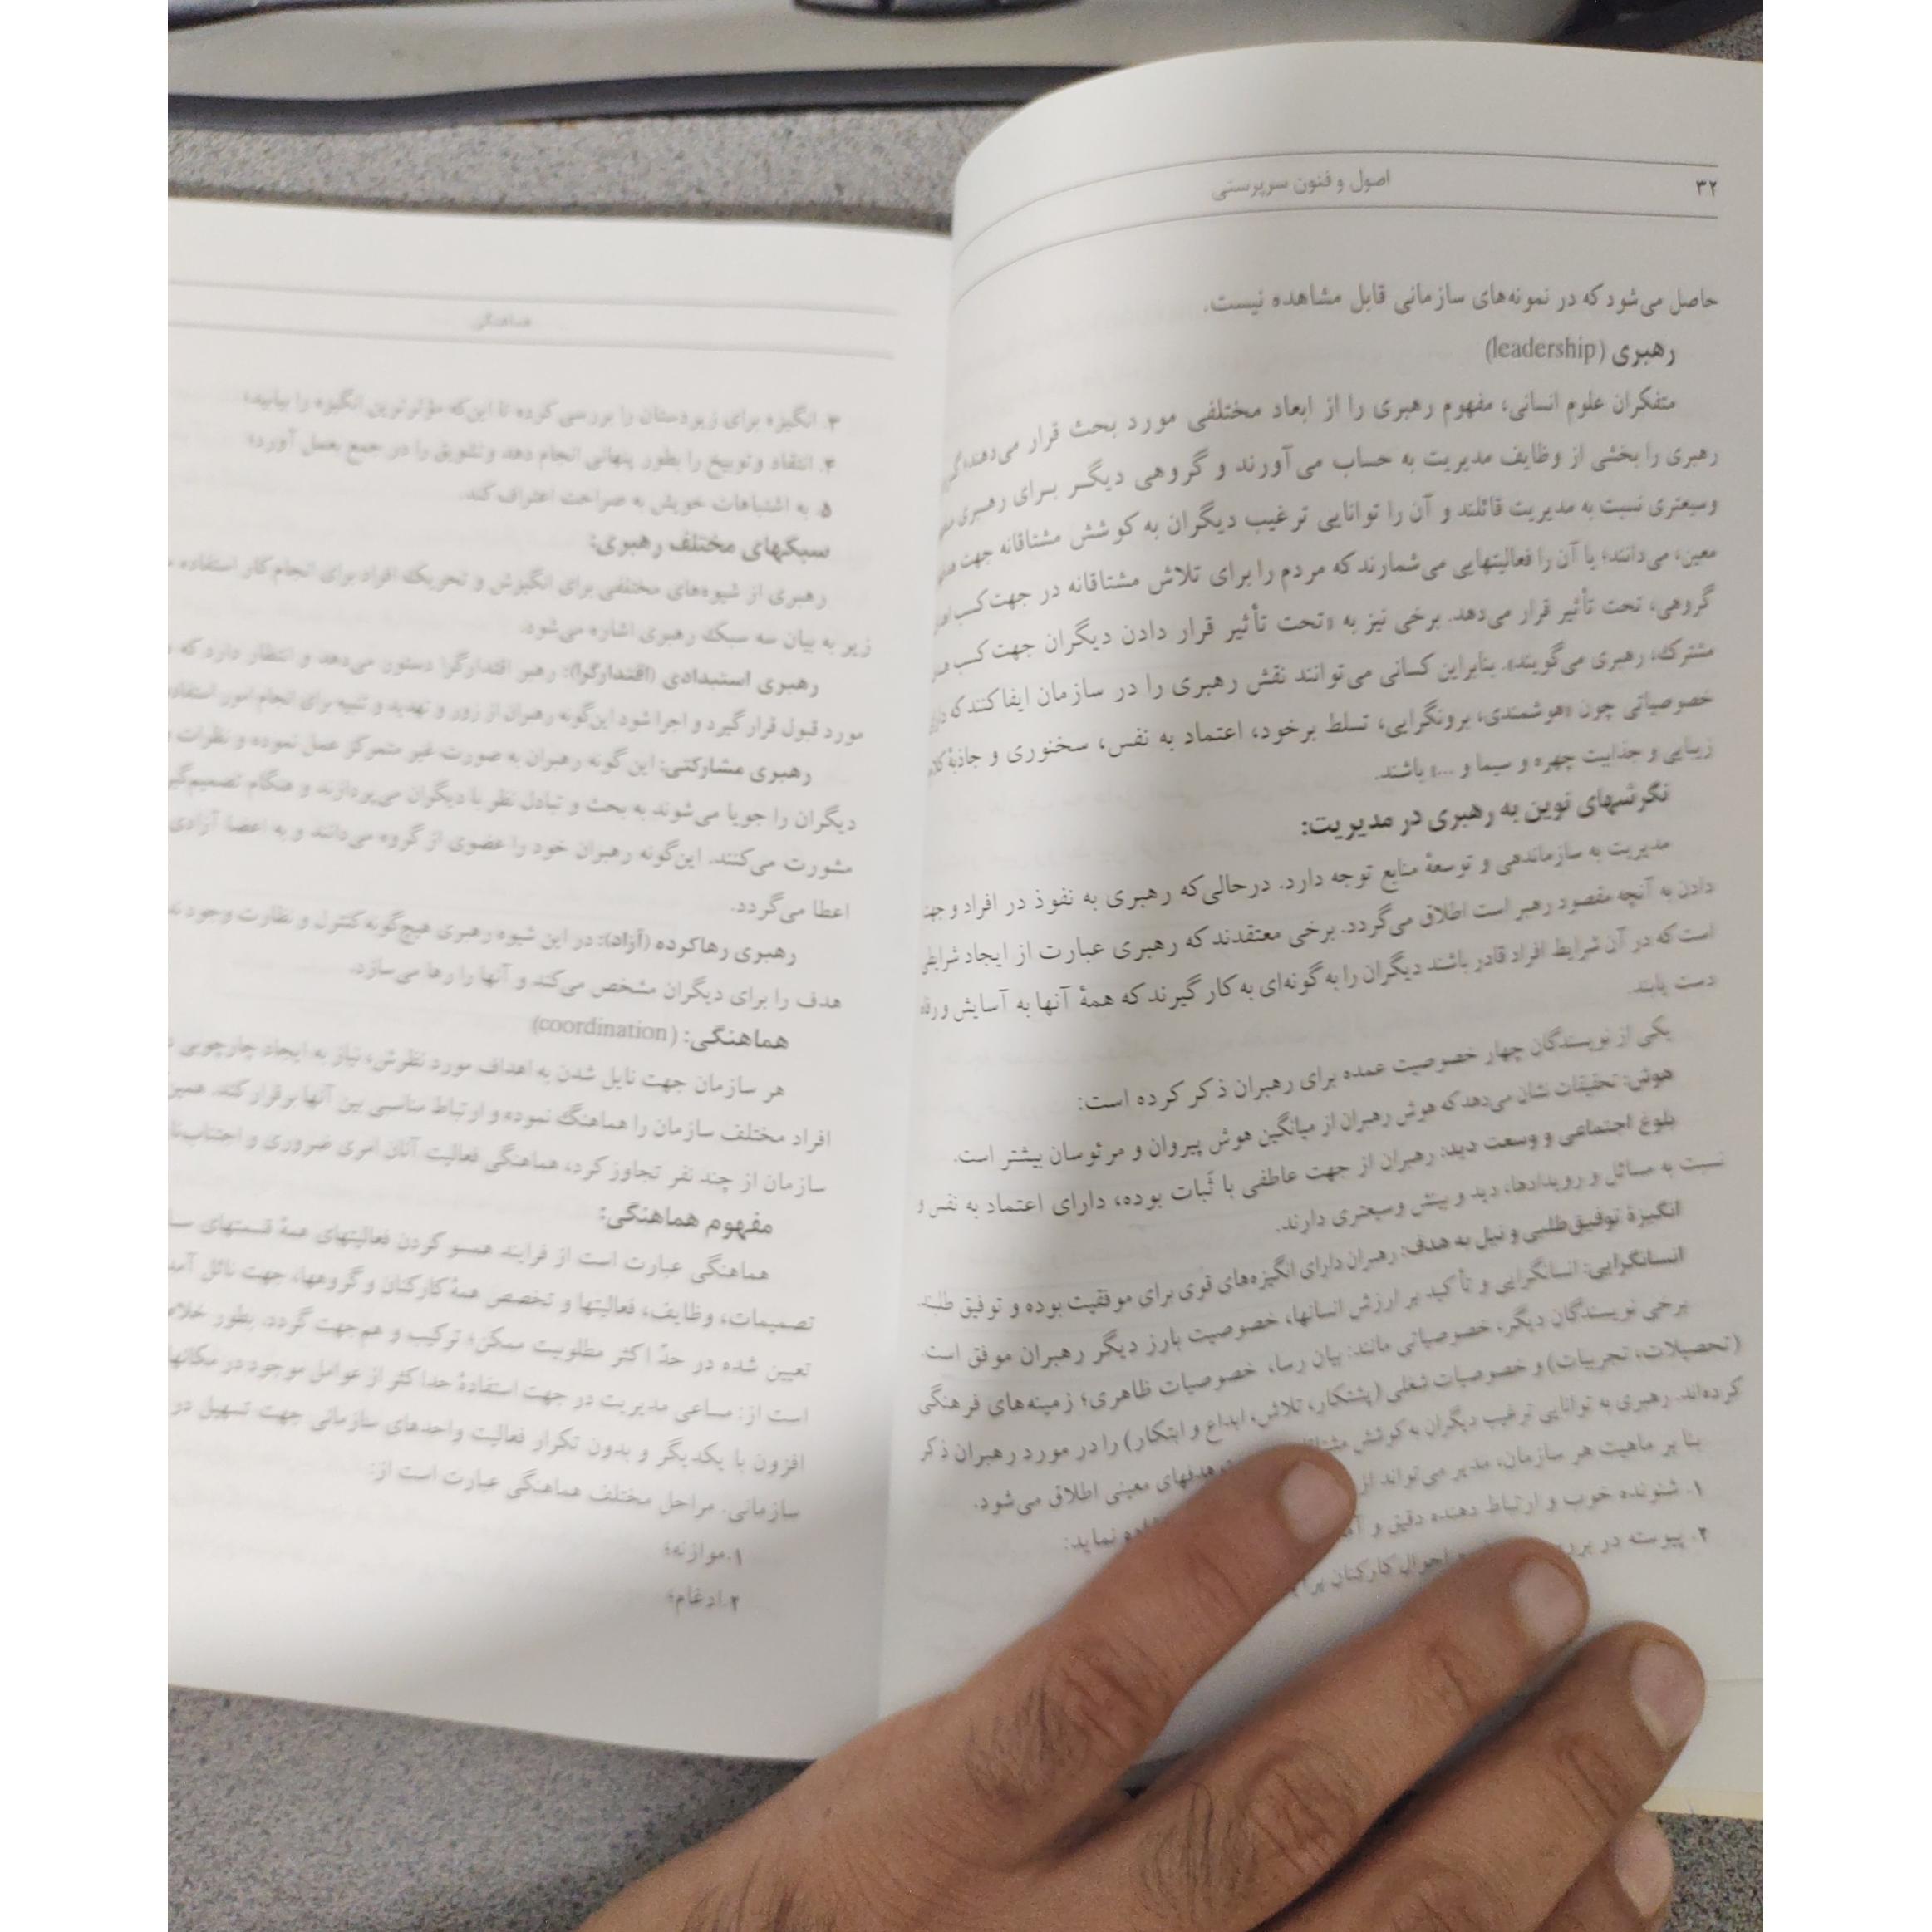 ۳۲
اصول و فنون سرپرستی
حاصل می‌شود که در نمونه‌های سازمانی قابل مشاهده نیست.
رهبری (leadership)
متفکران علوم انسانی، مفهوم رهبری را از ابعاد مختلفی مورد بحث قرار می‌دهند؛
رهبری را بخشی از وظایف مدیریت به حساب می‌آورند و گروهی دیگر برای رهبری
وسیعتری نسبت به مدیریت قائلند و آن را توانایی ترغیب دیگران به کوشش مشتاقانه جهت
معین، می‌دانند؛ یا آن را فعالیتهایی می‌شمارند که مردم را برای تلاش مشتاقانه در جهت کسب
گروهی، تحت تأثیر قرار می‌دهد. برخی نیز به «تحت تأثیر قرار دادن دیگران جهت کسب
مشترک، رهبری می‌گویند». بنابراین کسانی می‌توانند نقش رهبری را در سازمان ایفا کنند که
خصوصیاتی چون «هوشمندی، برونگرایی، تسلط برخود، اعتماد به نفس، سخنوری و جاذبهٔ
زیبایی و جذابیت چهره و سیما و ...» باشند.
نگرشهای نوین به رهبری در مدیریت:
مدیریت به سازماندهی و توسعهٔ منابع توجه دارد. درحالی‌که رهبری به نفوذ در افراد و جهت
دادن به آنچه مقصود رهبر است اطلاق می‌گردد. برخی معتقدند که رهبری عبارت از ایجاد شرایطی
است که در آن شرایط افراد قادر باشند دیگران را به گونه‌ای به کار گیرند که همهٔ آنها به آسایش و رفاه
دست یابند.
یکی از نویسندگان چهار خصوصیت عمده برای رهبران ذکر کرده است:
هوش: تحقیقات نشان می‌دهد که هوش رهبران از میانگین هوش پیروان و مرئوسان بیشتر است.
بلوغ اجتماعی و وسعت دید: رهبران از جهت عاطفی با ثَبات بوده، دارای اعتماد به نفس و
نسبت به مسائل و رویدادها، دید و بینش وسیعتری دارند.
انگیزهٔ توفیق‌طلبی و نیل به هدف: رهبران دارای انگیزه‌های قوی برای موفقیت بوده و توفیق طلبند.
انسانگرایی: انسانگرایی و تأکید بر ارزش انسانها، خصوصیت بارز دیگر رهبران موفق است.
برخی نویسندگان دیگر، خصوصیاتی مانند: بیان رسا، خصوصیات ظاهری؛ زمینه‌های فرهنگی
(تحصیلات، تجربیات) و خصوصیات شغلی (پشتکار، تلاش، ابداع و ابتکار) را در مورد رهبران ذکر
کرده‌اند. رهبری به توانایی ترغیب دیگران به کوشش هدفهای معینی اطلاق می‌شود.
بنا بر ماهیت هر سازمان، مدیر می‌تواند از نماید:
۱. شنونده خوب و ارتباط دهنده دقیق و
۲. پیوسته در احوال کارکنان
هماهنگی
۳. انگیزه برای زیردستان را بررسی کرده تا این‌که مؤثرترین انگیزه را بیابید؛
۴. انتقاد و توبیخ را بطور پنهانی انجام دهد و تشویق را در جمع بعمل آورد؛
۵. به اشتباهات خویش به صراحت اعتراف کند.
سبکهای مختلف رهبری:
رهبری از شیوه‌های مختلفی برای انگیزش و تحریک افراد برای انجام کار استفاده
زیر به بیان سه سبک رهبری اشاره می‌شود.
رهبری استبدادی (اقتدارگرا): رهبر اقتدارگرا دستور می‌دهد و انتظار دارد که
مورد قبول قرار گیرد و اجرا شود این‌گونه رهبران از زور و تهدید و تنبیه برای انجام امور استفاده
رهبری مشارکتی: این گونه رهبران به صورت غیر متمرکز عمل نموده و نظرات
دیگران را جویا می‌شوند به بحث و تبادل نظر با دیگران می‌پردازند و هنگام
مشورت می‌کنند. این‌گونه رهبران خود را عضوی از گروه می‌دانند و به اعضا آزادی
اعطا می‌گردد.
رهبری رهاکرده (آزاد): در این شیوه رهبری هیچ‌گونه کنترل و نظارت وجود
هدف را برای دیگران مشخص می‌کند و آنها را رها می‌سازد.
هماهنگی: (coordination)
هر سازمان جهت نایل شدن به اهداف مورد نظرش، نیاز به ایجاد چارچوبی
افراد مختلف سازمان را هماهنگ نموده و ارتباط مناسبی بین آنها برقرار کند.
سازمان از چند نفر تجاوز کرد، هماهنگی فعالیت آنان امری ضروری و
مفهوم هماهنگی:
هماهنگی عبارت است از فرایند همسو کردن فعالیتهای همهٔ قسمتهای
تصمیمات، وظایف، فعالیتها و تخصص همهٔ کارکنان و گروهها، جهت نائل
تعیین شده در حدّ اکثر مطلوبیت ممکن؛ ترکیب و هم‌جهت گردد. بطور
است از: مساعی مدیریت در جهت استفادهٔ حداکثر از عوامل موجود در
افزون با یکدیگر و بدون تکرار فعالیت واحدهای سازمانی جهت تسهیل در
سازمانی. مراحل مختلف هماهنگی عبارت است از:
۱.موازنه؛
۲.ادغام؛